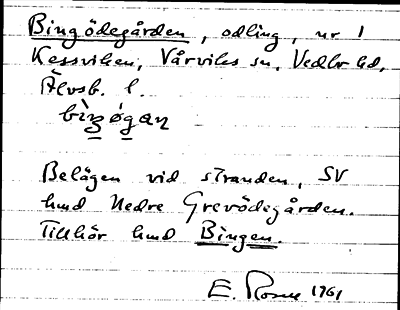 Bingödegården, odling, nr 1
Kessviken, Vårviks sn, Vedbo hd,
Älvsb. l.
bìŋøgan
Belägen vid stranden, SV
hmd Nedre Grevödegården.
Tillhör hmd Bingen.
E. Rosen 1961